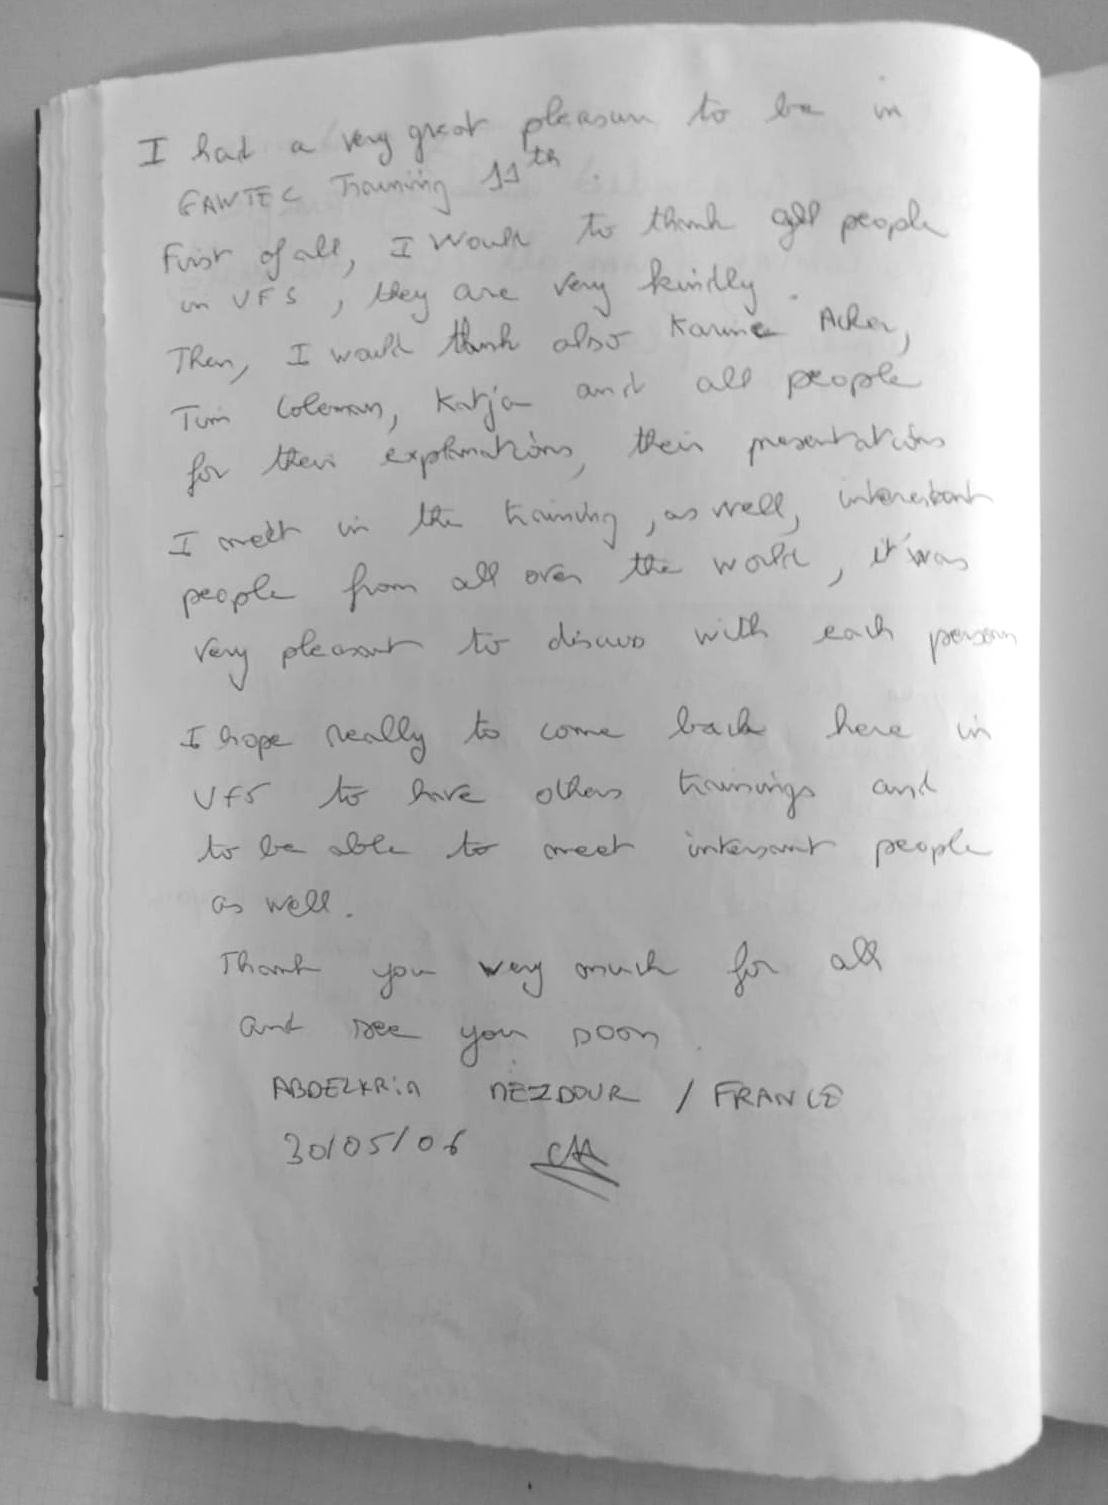 I had a very great pleasure to be in
GAWTEC Training 11th.
First of all, I would to thank all people
in VFS, they are very kindly.
Then, I would thank also Karine Acker,
Tim Coleman, Katja and all people
for their explanations, their presentations
I meet in the training, as well, interestant
people from all over the world, it was
very pleasant to discuss with each person
I hope really to come back here in
VFS to have others trainings and
to be able to meet intersant people
as well.
Thank you very much for all
and see you soon.
ABDELKRIM MEZDOUR / FRANCE
30/05/06